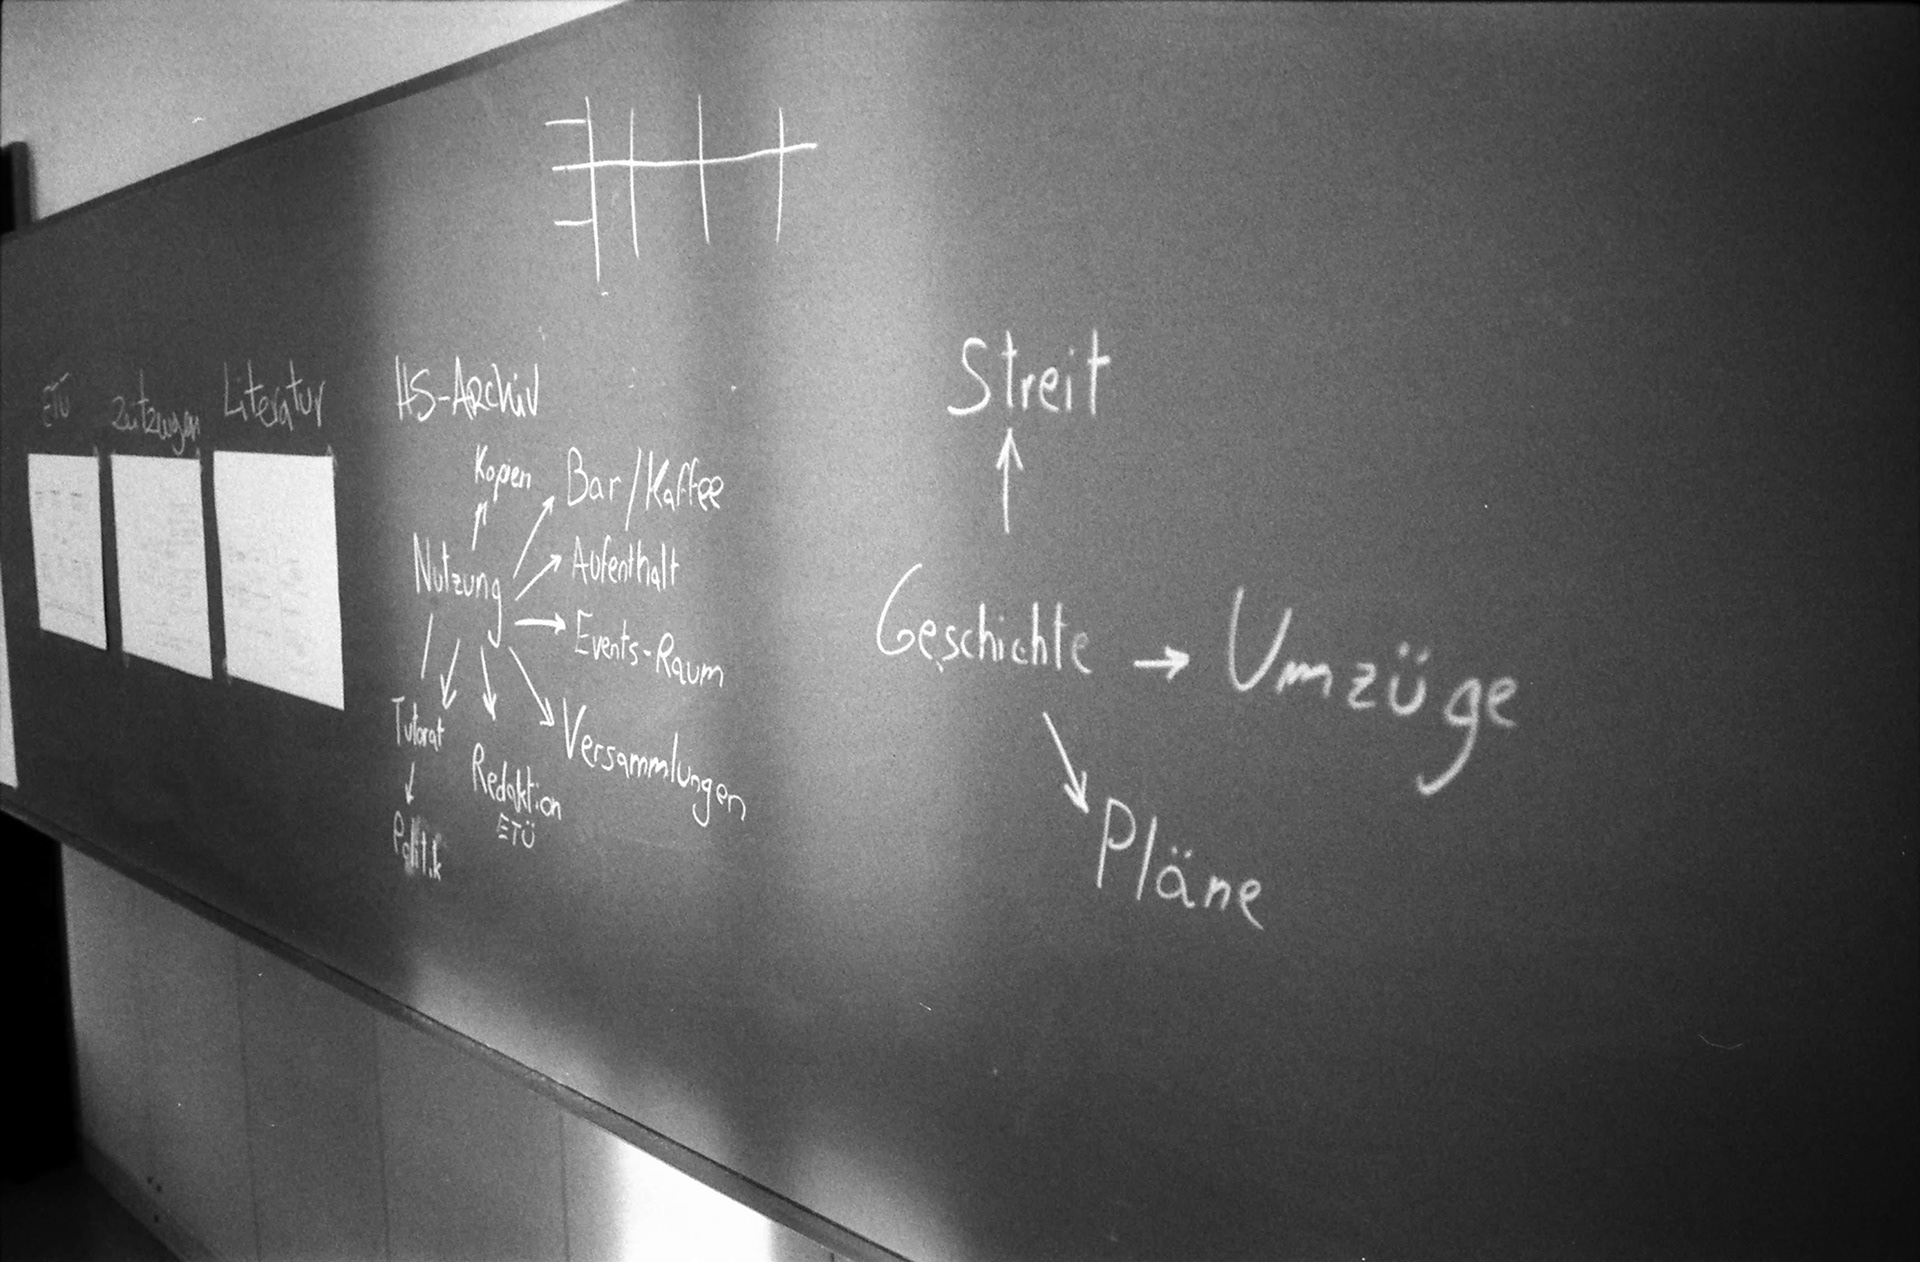 ETÜ
Zeitzeugen
Literatur
HS-Archiv
Kopien
Bar/Kaffee
Nutzung
Aufenthalt
Events-Raum
Tutorat
Politik
Redaktion
ETÜ
Versammlungen
Streit
Geschichte → Umzüge
Pläne